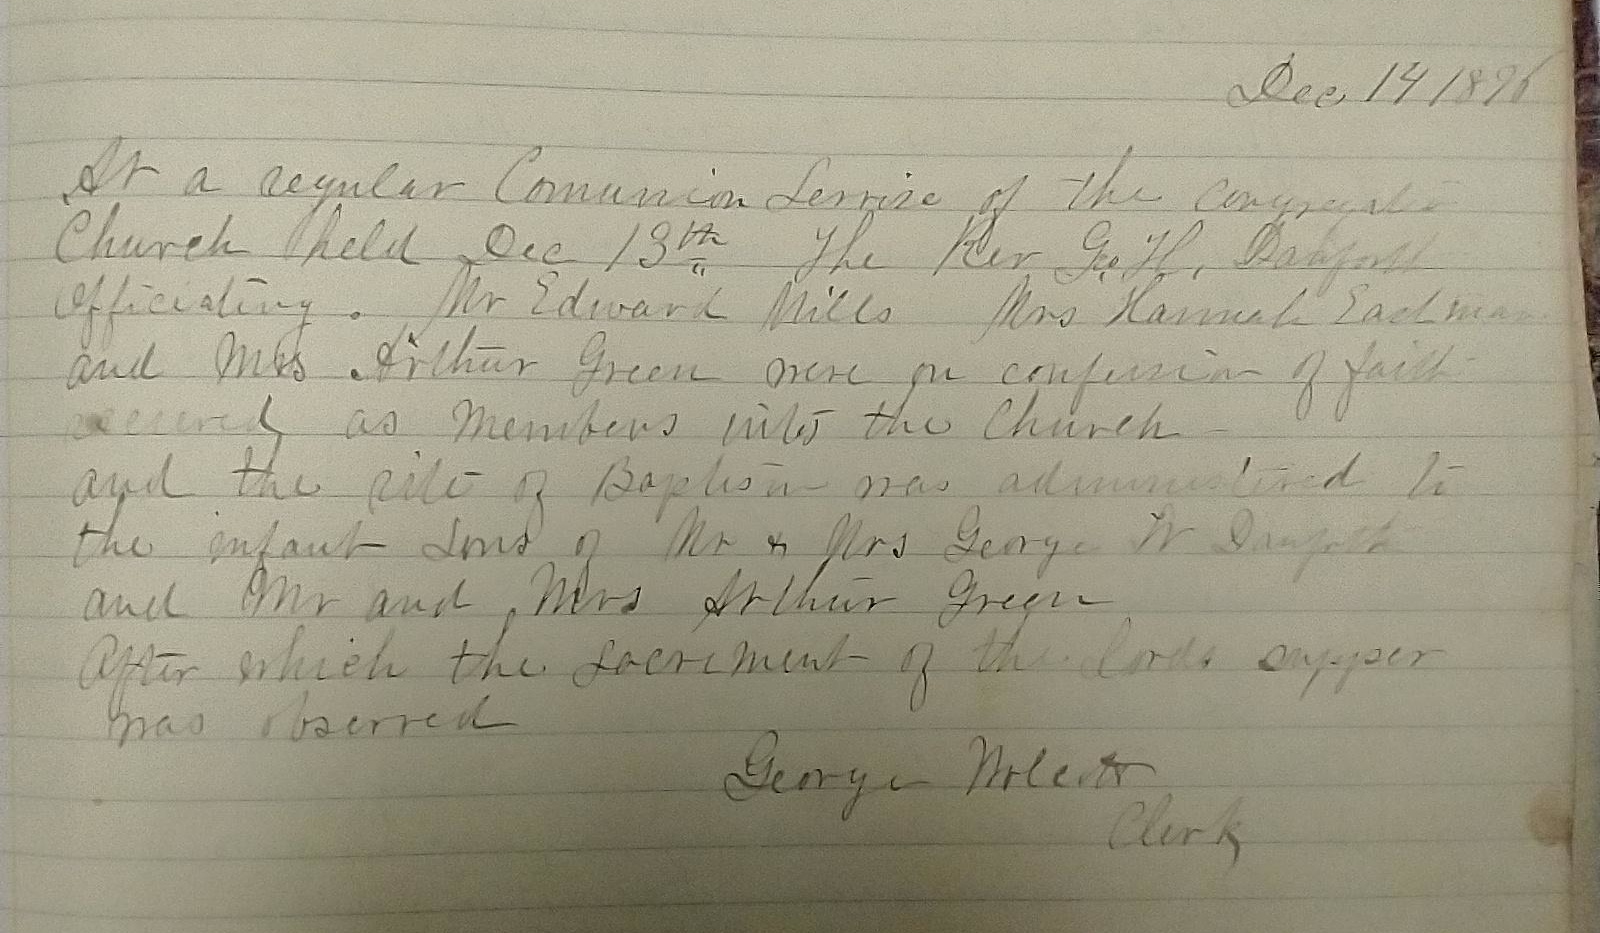 Dec, 14 1896
At a regular Comunion Servise of the
Church held Dec 13th The Rev Geo. H. Danforth
officiating. Mr Edward Mills Mrs Hannah Eastman
and Mrs Arthur Green were on confession of faith
received as Members into the Church
and the rite of Baptism was administered to
the infant sons of Mr & Mrs George W Danforth
and Mr and Mrs Arthur Green
After which the Sacrement of the lords supper
was observed
George Wolcott
Clerk